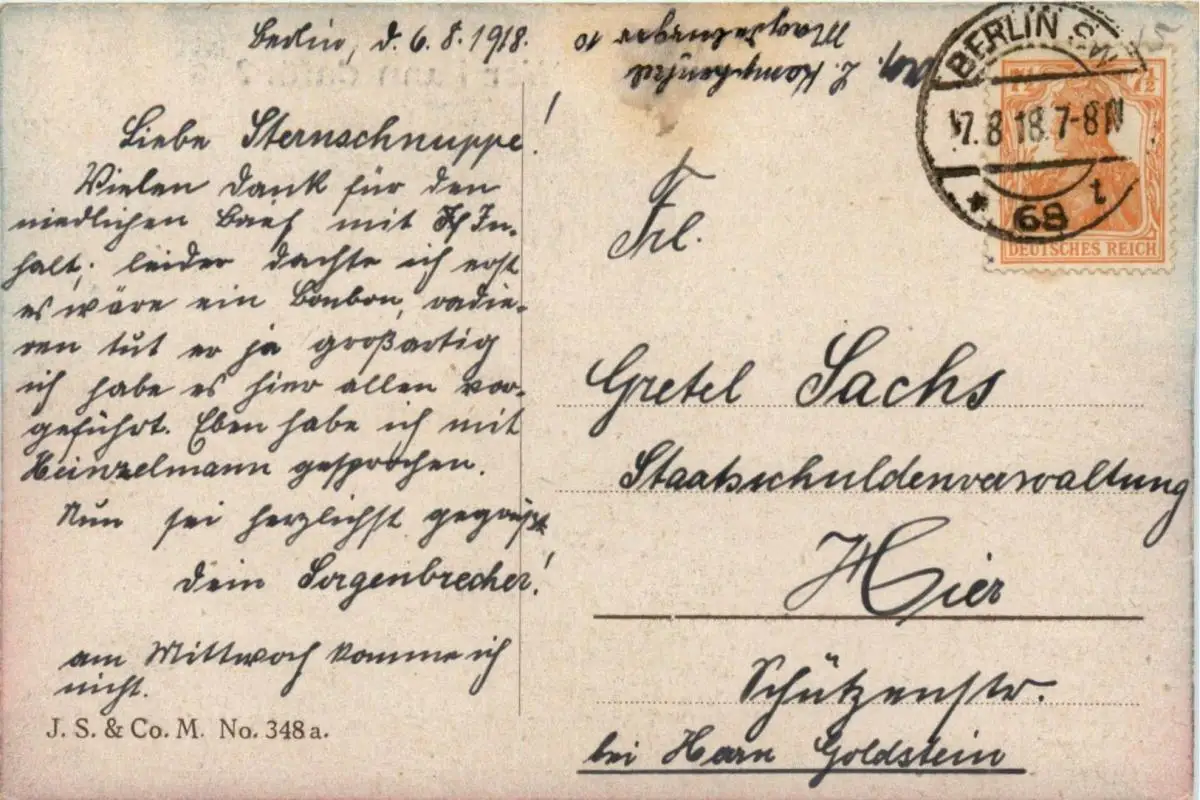 Berlin, d. 6.8.1918.
Liebe Sternschnuppe!
Vielen Dank für den
niedlichen Brief mit In-
halt; leider dachte ich erst
es wäre ein Bonbon, radie-
ren tut er ja großartig
ich habe es hier allen vor-
geführt. Eben habe ich mit
Heinzelmann gesprochen.
Nun sei herzlichst gegrüßt
Dein Sorgenbrecher!
am Mittwoch komme ich
nicht.
J. S. & Co. M. No. 348 a.
Magdeburger 10
BERLIN S.W.
7.8.18.7-8N
* 68 t
7½ 7½
DEUTSCHES REICH
Frl.
Gretel Sachs
Staatsschuldenverwaltung
Hier
Schützenstr.
bei Herrn Goldstein